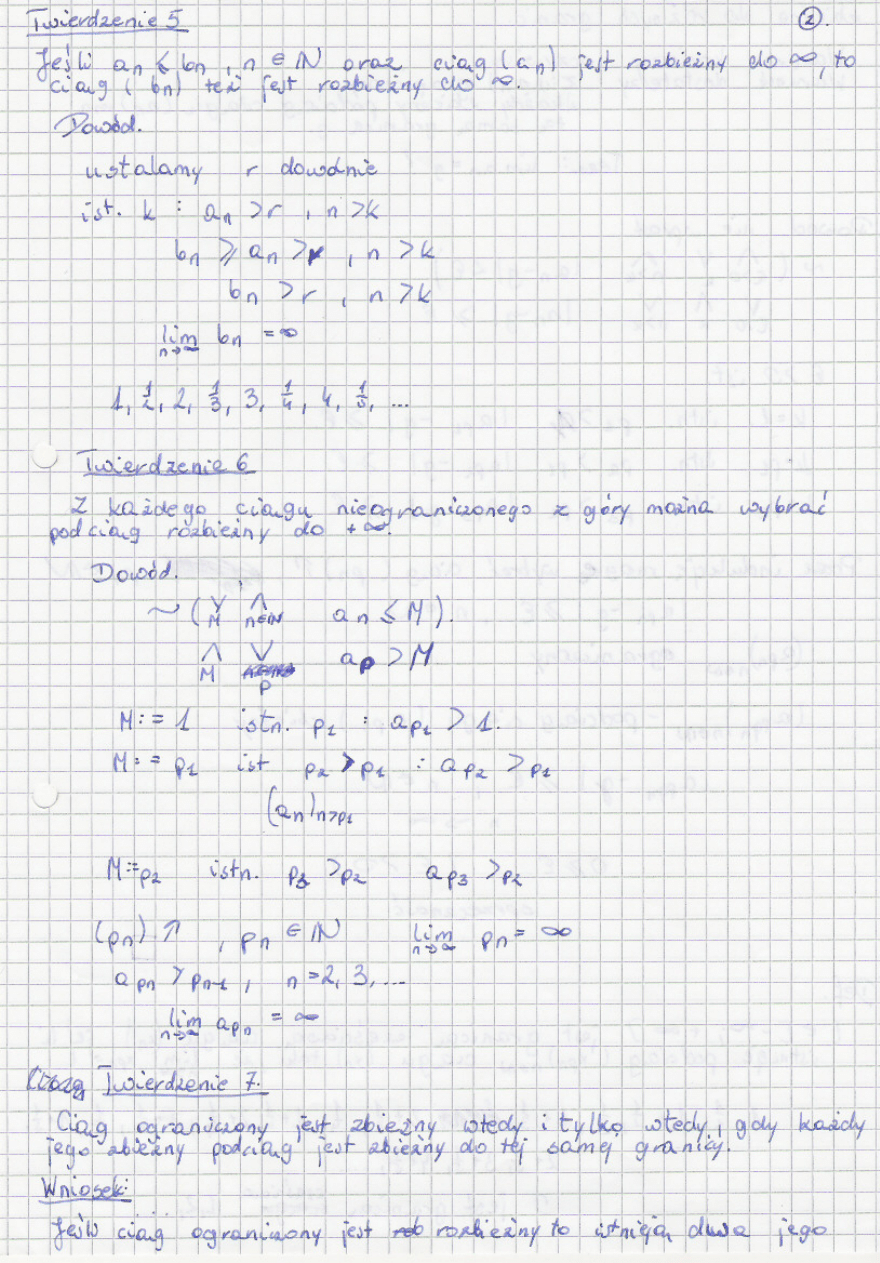 Twierdzenie 5
2.
Jeśli an ≤ bn , n ∈ ℕ oraz ciąg (an) jest rozbieżny do ∞, to
ciąg (bn) też jest rozbieżny do ∞.
Dowód.
ustalamy r dowolnie
ist. k : an > r , n > k
bn ≥ an > r , n > k
bn > r , n > k
lim n→∞ bn = ∞
1, 1/2, 2, 1/3, 3, 1/4, 4, 1/5, ...
Twierdzenie 6
Z każdego ciągu nieograniczonego z góry można wybrać
podciąg rozbieżny do +∞.
Dowód.
~ (⋁ M ⋀ n∈ℕ an ≤ M).
⋀ M ⋁ p ap > M
M := 1 istn. p1 : ap1 > 1.
M := p1 ist p2 > p1 : ap2 > p1
(an)n>p1
M := p2 istn. p3 > p2 ap3 > p2
(pn) ↑ , pn ∈ ℕ lim n→∞ pn = ∞
apn > pn-1 , n = 2, 3, ...
lim n→∞ apn = ∞
Twierdzenie 7.
Ciąg ograniczony jest zbieżny wtedy i tylko wtedy, gdy każdy
jego zbieżny podciąg jest zbieżny do tej samej granicy.
Wniosek:
Jeśli ciąg ograniczony jest rozbieżny to istnieją dwa jego